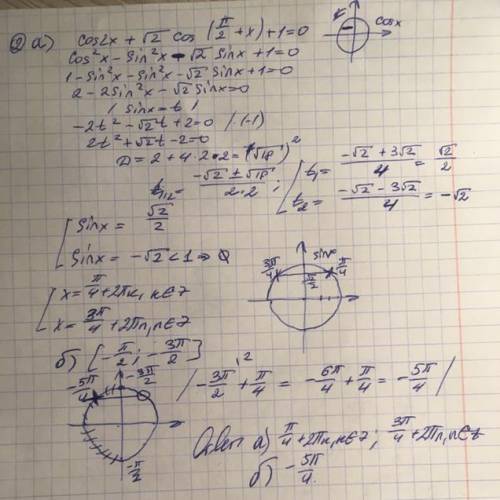 ② а) cos2x + √2 cos (π/2 + x) + 1 = 0
cosx
cos²x - sin²x - √2 sinx + 1 = 0
1 - sin²x - sin²x - √2 sinx + 1 = 0
2 - 2sin²x - √2 sinx = 0
/ sinx = t /
-2t² - √2t + 2 = 0 /(-1)
2t² + √2t - 2 = 0
D = 2 + 4·2·2 = (√18)²
t₁,₂ = (-√2 ± √18)/(2·2) ;
[ t₁ = (-√2 + 3√2)/4 = √2/2
t₂ = (-√2 - 3√2)/4 = -√2
[ sinx = √2/2
sinx = -√2 < 1 ⇒ ∅
sin
3π/4 √2/2 π/4
[ x = π/4 + 2πk, k∈Z
x = 3π/4 + 2πn, n∈Z
б) [-π/2; -3π/2]
-5π/4 -3π/2
-π/2
/ -3π/2 + π/4 = -6π/4 + π/4 = -5π/4 /
Ответ а) π/4 + 2πk, k∈Z ; 3π/4 + 2πn, n∈Z
б) -5π/4.